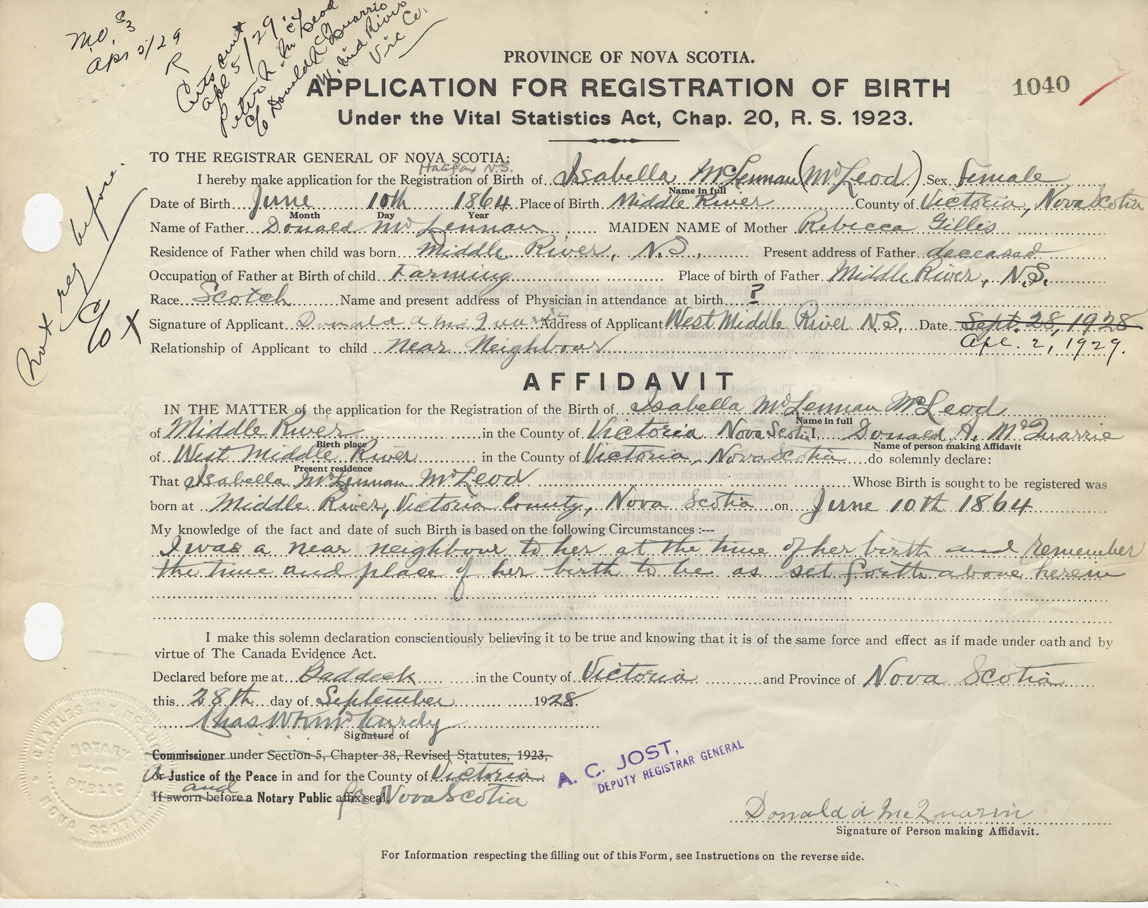 M.O. $3
Apr 5/29
R
Certs sent
Apl 5/29 %
Peter A. McLeod
c/o Donald A McQuarrie
W. Mid River
Vic Co.
PROVINCE OF NOVA SCOTIA.
APPLICATION FOR REGISTRATION OF BIRTH
1040
Under the Vital Statistics Act, Chap. 20, R. S. 1923.
TO THE REGISTRAR GENERAL OF NOVA SCOTIA:
Halifax N.S.
I hereby make application for the Registration of Birth of Isabella McLennan (McLeod) Sex Female
Name in full
Date of Birth June 10th 1864 Place of Birth Middle River County of Victoria, Nova Scotia
Month Day Year
Name of Father Donald McLennan MAIDEN NAME of Mother Rebecca Gillis
Residence of Father when child was born Middle River, N.S. Present address of Father deceased
Occupation of Father at Birth of child Farming Place of birth of Father Middle River, N.S.
Race Scotch Name and present address of Physician in attendance at birth ?
Signature of Applicant Donald A McQuarrie Address of Applicant West Middle River N.S. Date Sept. 28, 1928
Apl. 2, 1929.
Relationship of Applicant to child near Neighbour
Not reg before.
AFFIDAVIT
IN THE MATTER of the application for the Registration of the Birth of Isabella McLennan McLeod
Name in full
of Middle River in the County of Victoria Nova Scotia I, Donald A. McQuarrie
Birth place Name of person making Affidavit
of West Middle River in the County of Victoria, Nova Scotia do solemnly declare:
Present residence
That Isabella McLennan McLeod Whose Birth is sought to be registered was
born at Middle River, Victoria County, Nova Scotia on June 10th 1864
My knowledge of the fact and date of such Birth is based on the following Circumstances :---
I was a near neighbour to her at the time of her birth and remember
the time and place of her birth to be as set forth above herein
I make this solemn declaration conscientiously believing it to be true and knowing that it is of the same force and effect as if made under oath and by
virtue of The Canada Evidence Act.
Declared before me at Baddeck in the County of Victoria and Province of Nova Scotia
this 28th day of September 1928.
Signature of
Commissioner under Section 5, Chapter 38, Revised Statutes, 1923,
A Justice of the Peace in and for the County of Victoria
and
If sworn before a Notary Public affix seal. for Nova Scotia
NOTARY
PUBLIC
NOVA SCOTIA
A. C. JOST,
DEPUTY REGISTRAR GENERAL
Donald A McQuarrie
Signature of Person making Affidavit.
For Information respecting the filling out of this Form, see Instructions on the reverse side.